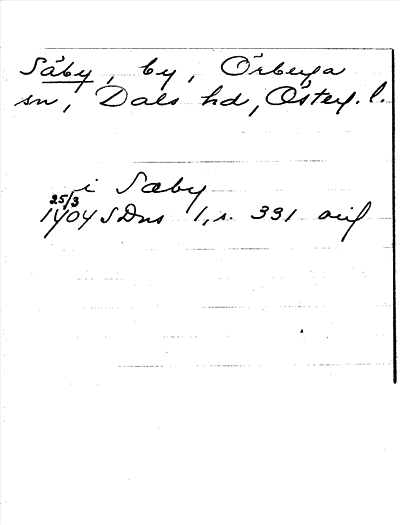 Säby, by, Örberga
sn, Dals hd, Östergl. l.
i Sæby
25/3
1404 SDns 1, s. 331 orig